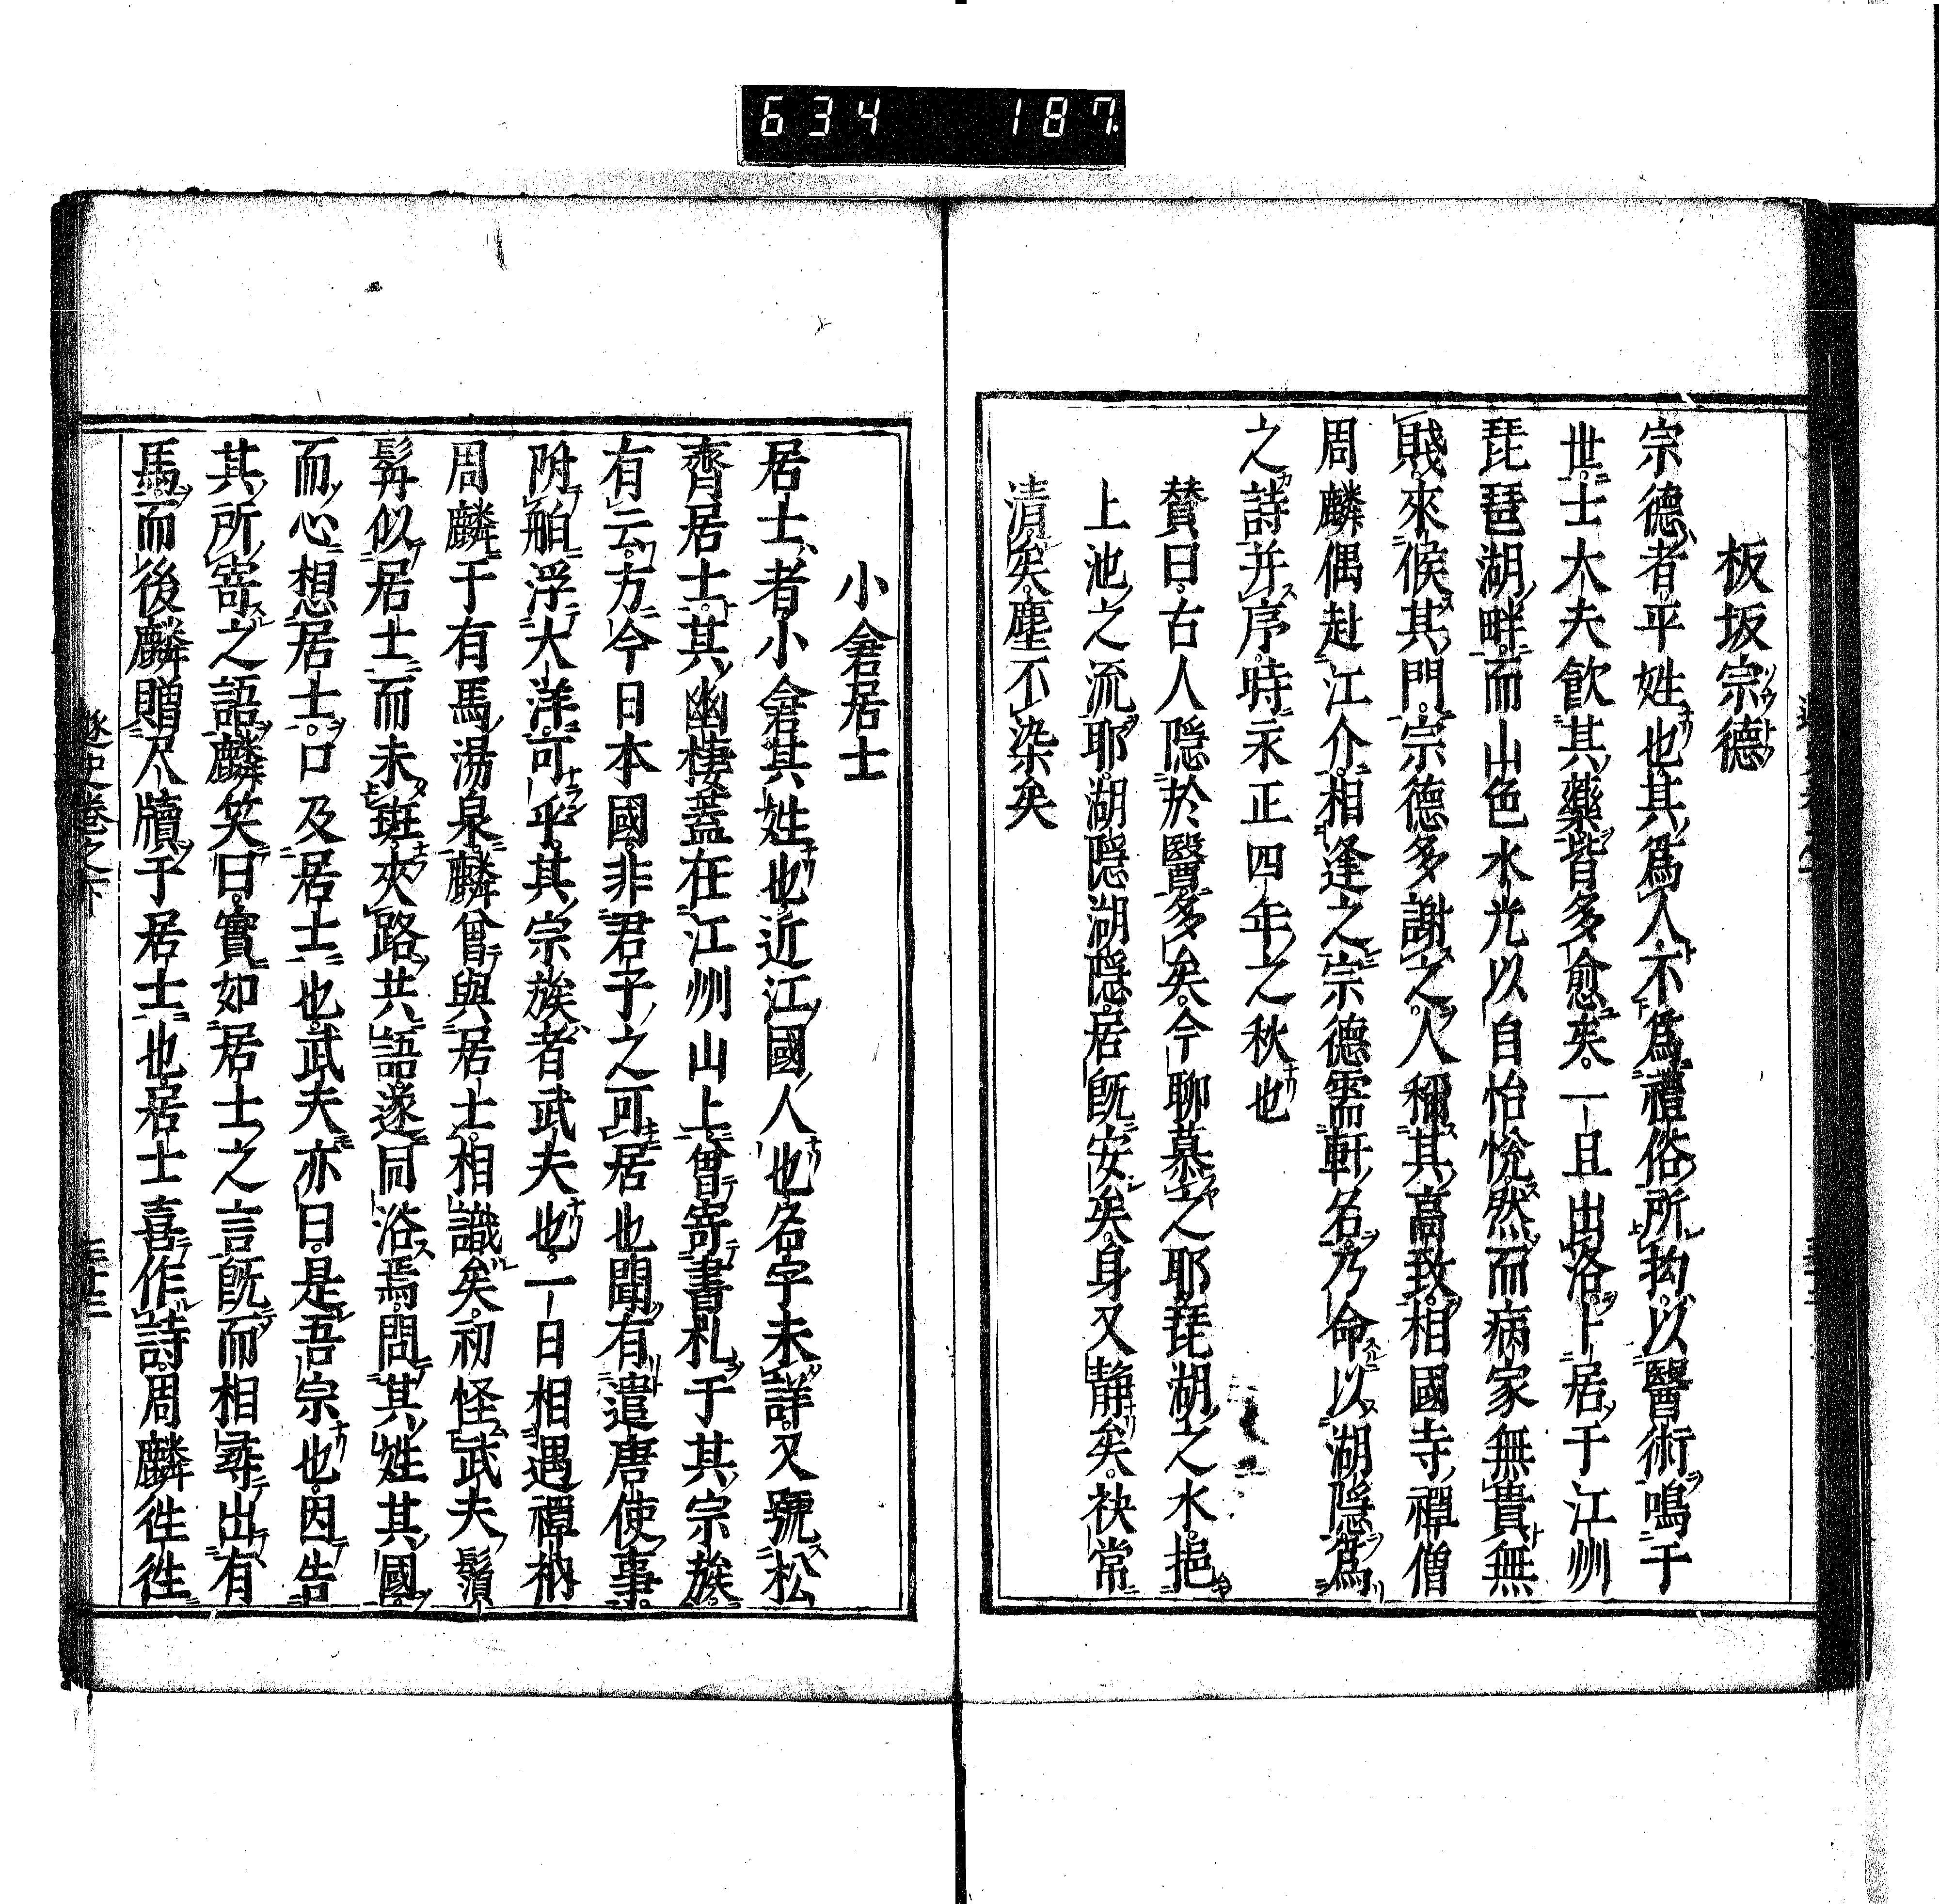 634 187
板坂宗德
宗德者平姓也其爲人不爲禮俗所拘以醫術鳴于
世士大夫飮其藥皆多愈矣一旦出洛卜居于江州
琵琶湖畔而山色水光以自怡悅然而病家無貴無
賤來候其門宗德多謝之人稱其高致相國寺禪僧
周麟偶赴江介相逢之宗德需軒名乃命以湖隱爲
之詩并序時永正四年之秋也
贊曰古人隱於醫多矣今聊慕之耶琵湖之水挹
上池之流耶湖隱湖隱居旣安矣身又靜矣袂常
淸矣塵不染矣
小倉居士
居士者小倉其姓也近江國人也名字未詳又號松
齊居士其幽棲蓋在江州山上曾寄書札于其宗族
有云方今日本國非君子之可居也聞有遣唐使事
附舶浮大洋可乎其宗族者武夫也一日相遇禪衲
周麟于有馬湯泉麟曾與居士相識矣初怪武夫鬚
髯似居士而未斑夾路共語遂同浴焉問其姓其國
而心想居士口及居士也武夫亦曰是吾宗也因告
其所寄之語麟笑曰實如居士之言旣而相尋出有
馬而後麟贈尺牘于居士也居士喜作詩周麟徃徃
遂史卷之下